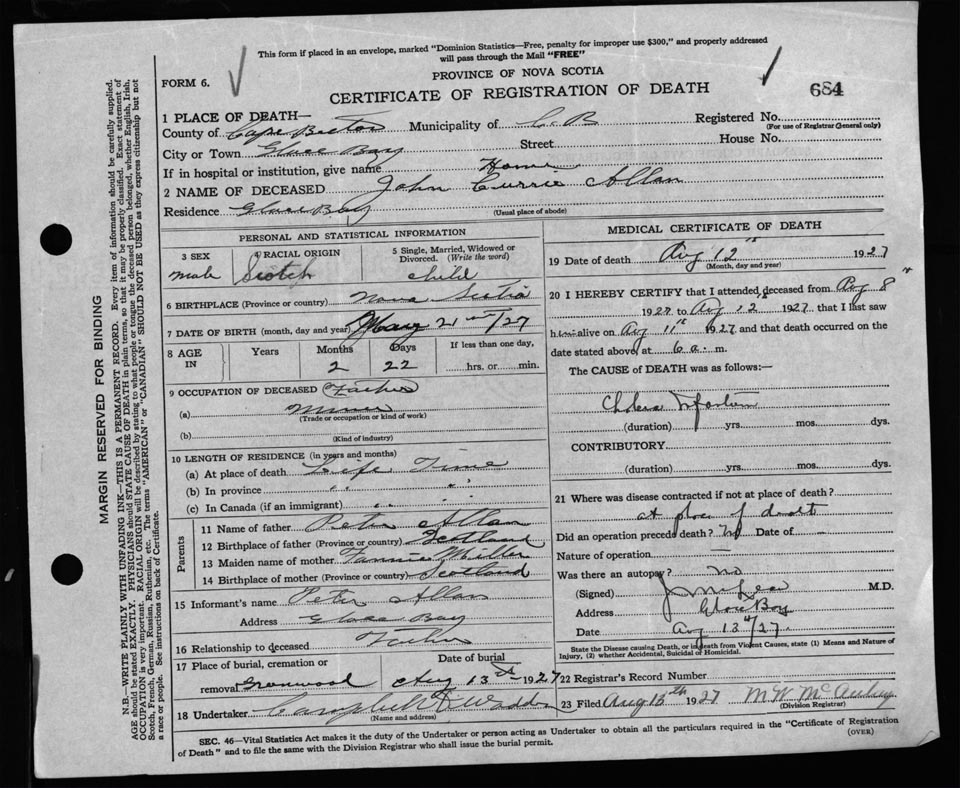 This form if placed in an envelope, marked "Dominion Statistics—Free, penalty for improper use $300," and properly addressed
will pass through the Mail "FREE"
FORM 6.
PROVINCE OF NOVA SCOTIA
CERTIFICATE OF REGISTRATION OF DEATH
684
1 PLACE OF DEATH—
County of Cape Breton Municipality of C. B Registered No.
(For use of Registrar General only)
City or Town Glace Bay Street House No.
If in hospital or institution, give name Home
2 NAME OF DECEASED John Currie Allan
Residence Glace Bay
(Usual place of abode)
PERSONAL AND STATISTICAL INFORMATION
3 SEX
male
4 RACIAL ORIGIN
Scotch
5 Single, Married, Widowed or
Divorced. (Write the word)
child
6 BIRTHPLACE (Province or country) Nova Scotia
7 DATE OF BIRTH (month, day and year) May 21st/27
8 AGE
IN
Years
Months
2
Days
22
If less than one day,
hrs. or min.
9 OCCUPATION OF DECEASED Father
(a) Miner
(Trade or occupation or kind of work)
(b)
(Kind of industry)
10 LENGTH OF RESIDENCE (in years and months)
(a) At place of death Life Time
(b) In province " "
(c) In Canada (if an immigrant) " "
Parents
11 Name of father Peter Allan
12 Birthplace of father (Province or country) Scotland
13 Maiden name of mother Fannie
14 Birthplace of mother (Province or country) Scotland
15 Informant's name Peter Allan
Address Glace Bay
16 Relationship to deceased Father
17 Place of burial, cremation or
removal Greenwood
Date of burial
Aug 13th 1927
18 Undertaker
(Name and address)
MEDICAL CERTIFICATE OF DEATH
19 Date of death Aug 12th 1927
(Month, day and year)
20 I HEREBY CERTIFY that I attended deceased from Aug 8th
1927 to Aug 12th 1927 that I last saw
him alive on Aug 11th 1927 and that death occurred on the
date stated above, at 6 a. m.
The CAUSE of DEATH was as follows:—
Cholera
(duration) yrs. mos. dys.
CONTRIBUTORY
(duration) yrs. mos. dys.
21 Where was disease contracted if not at place of death?
at place of death
Did an operation precede death? No Date of —
Nature of operation —
Was there an autopsy? no
(Signed) M.D.
Address Glace Bay
Date Aug 13th/27
State the Disease causing Death, or in death from Violent Causes, state (1) Means and Nature of
Injury, (2) whether Accidental, Suicidal or Homicidal.
22 Registrar's Record Number
23 Filed Aug 13th 1927
(Division Registrar)
SEC. 46—Vital Statistics Act makes it the duty of the Undertaker or person acting as Undertaker to obtain all the particulars required in the "Certificate of Registration
of Death" and to file the same with the Division Registrar who shall issue the burial permit.
(OVER)
MARGIN RESERVED FOR BINDING
N.B.—WRITE PLAINLY WITH UNFADING INK—THIS IS A PERMANENT RECORD. Every item of information should be carefully supplied.
AGE should be stated EXACTLY. PHYSICIANS should STATE CAUSE OF DEATH in plain terms, so that it may be properly classified. Exact statement of
OCCUPATION is very important. RACIAL ORIGIN will be described by stating to what people or tongue the deceased person belonged, whether English, Irish,
Scotch, French, German, Russian, Ruthenian, etc. The terms "AMERICAN" or "CANADIAN" SHOULD NOT BE USED as they express citizenship but not
a race or people. See instructions on back of Certificate.